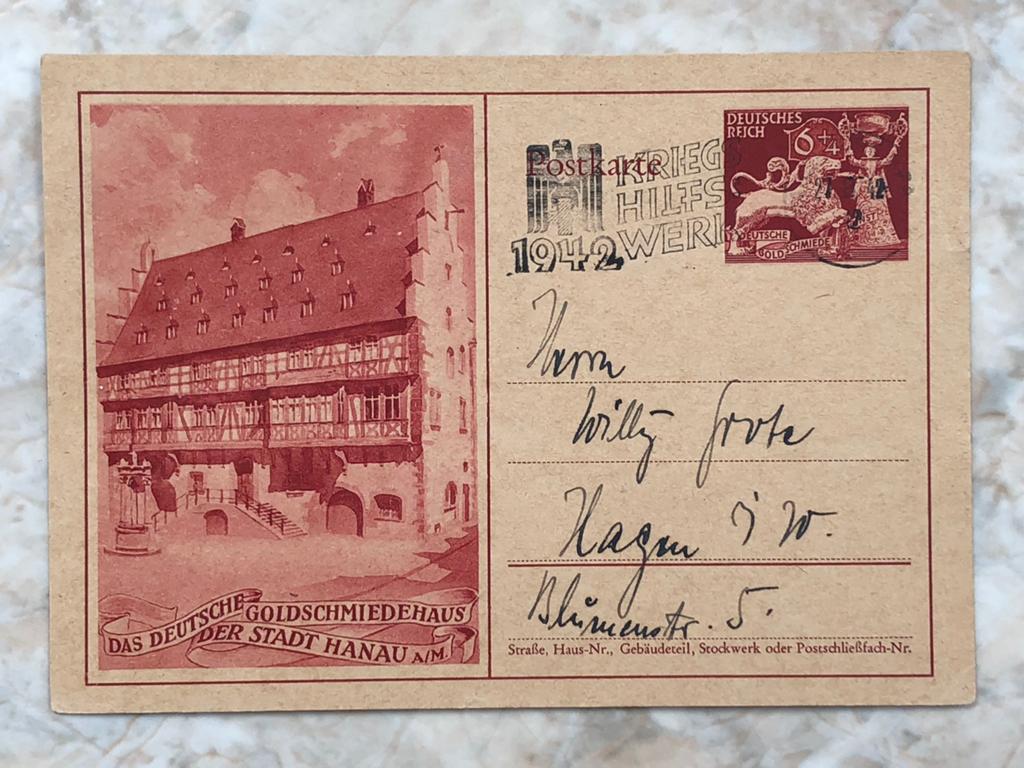 DAS DEUTSCHE GOLDSCHMIEDEHAUS
DER STADT HANAU A/M.
Postkarte
KRIEGS
HILFS
WERK
1942
DEUTSCHES
REICH
6+4
DEUTSCHE
GOLDSCHMIEDE
Herrn
Willy Grote
Hagen i W.
Blumenstr. 5.
Straße, Haus-Nr., Gebäudeteil, Stockwerk oder Postschließfach-Nr.